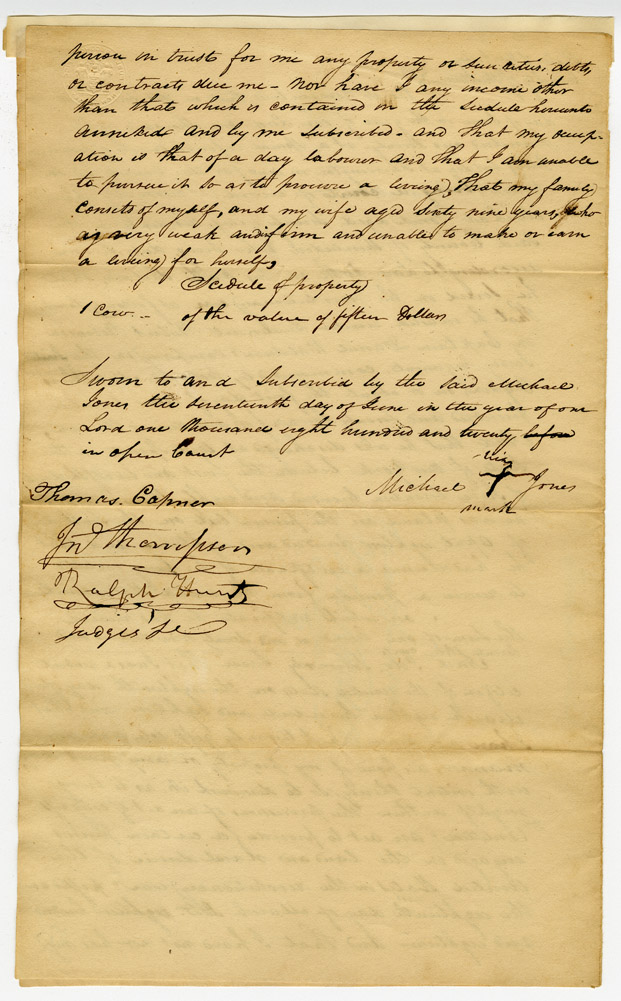 person in trust for me any property or securities, debts,
or contracts due me - nor have I any income other
than that which is contained in the Scedule hereunto
annexed and by me subscribed - and that my occup-
ation is that of a day labourer and that I am unable
to pursue it so as to procure a living, That my family
consets of myself, and my wife aged sixty nine years, who
is very weak and infirm and unable to make or earn
a living for herself,
Scedule of property
1 Cow - of the value of fifteen Dollars
Sworn to and Subscribed by the said Michael
Jones the seventeenth day of June in the year of our
Lord one thousand eight hundred and twenty before
in open Court
his
Michael Jones
mark
Thomas. Capner
Jno Thompson
Ralph Hunt
Judges &c